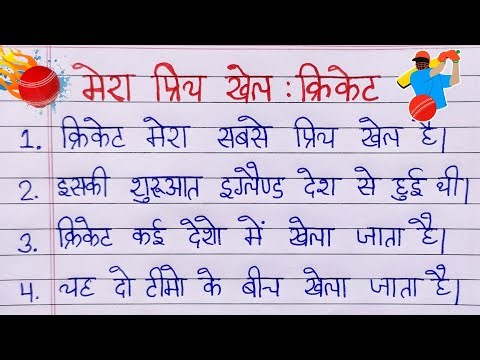 मेरा प्रिय खेल : क्रिकेट
1. क्रिकेट मेरा सबसे प्रिय खेल है।
2. इसकी शुरूआत इग्लैण्ड देश से हुई थी।
3. क्रिकेट कई देशो में खेला जाता है।
4. यह दो टीमो के बीच खेला जाता है।